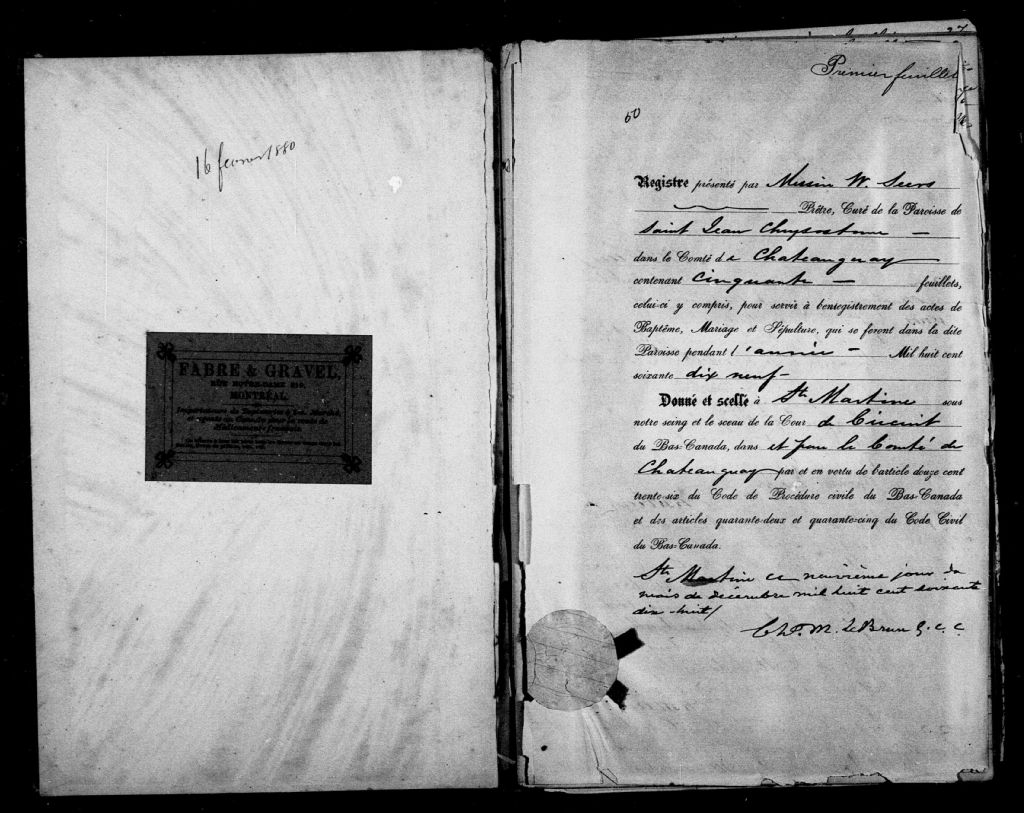 16 fevrier 1880
FABRE & GRAVEL,
RUE NOTRE-DAME 219,
MONTRÉAL.
Premier feuillet
50
Registre présenté par Messire W. Seers
Prêtre, Curé de la Paroisse de
Saint Jean Chrysostome —
dans le Comté de Chateauguay
contenant cinquante — feuillets,
celui-ci y compris, pour servir à l'enregistrement des actes de
Baptême, Mariage et Sépulture, qui se feront dans la dite
Paroisse pendant l'année — Mil huit cent
soixante dix neuf —
Donné et scellé à Ste Martine sous
notre seing et le sceau de la Cour de Circuit
du Bas-Canada, dans et pour le Comté de
Chateauguay par et en vertu de l'article douze cent
trente-six du Code de Procédure civile du Bas-Canada
et des articles quarante-deux et quarante-cinq du Code Civil
du Bas-Canada.
Ste Martine ce neuvième jour de
mois de décembre mil huit cent soixante
dix-huit/
M. LeBrun G. C. C.